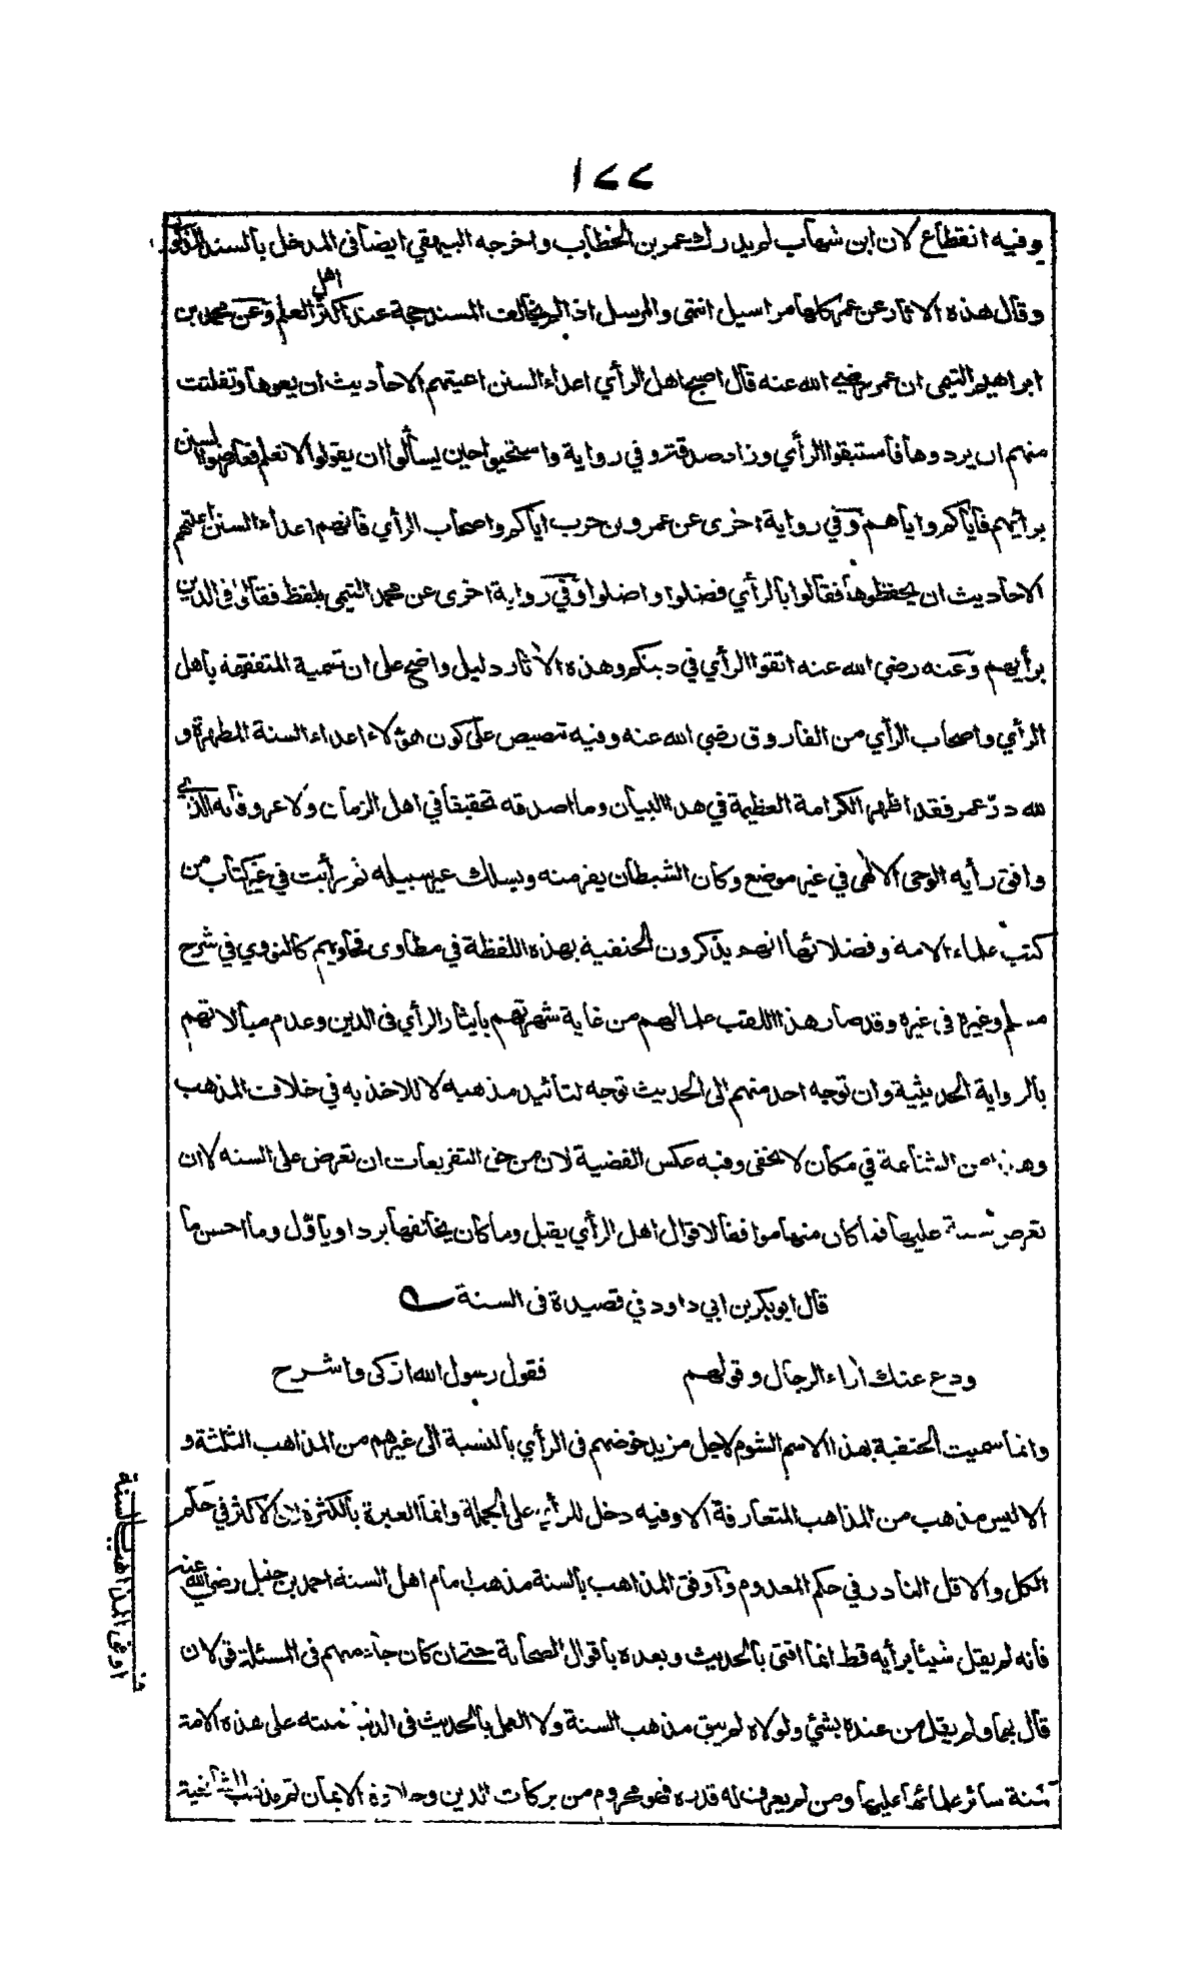 ١٧٧
وفيه انقطاع لان ابن شهاب لم يدرك عمر بن الخطاب واخرجه البيهقي ايضا فى المدخل بالسند المذكور
وقال هذه الاثار عن عمر كلها مراسيل انتهى والمرسل اذا لم يخالف المسند حجة عند اكثر اهل العلم وعن محمد بن
ابراهيم التيمى ان عمر رضي الله عنه قال اصبح اهل الرأي اعداء السنن اعيتهم الاحاديث ان يعوها وتفلتت
منهم ان يردوها فاستبقوا الرأي وزاد صدقة وفي رواية واستحيوا حين يسألوا ان يقولوا لا نعلم فعارضوا السنن
برائهم فاياكم واياهم وفي رواية اخرى عن عمرو بن حرب اياكم واصحاب الرأي فانهم اعداء السنن اعيتهم
الاحاديث ان يحفظوها فقالوا بالرأي فضلوا واضلوا وفي رواية اخرى عن محمد التيمى بلفظ فقالوا فى الدين
برأيهم وعنه رضي الله عنه اتقوا الرأي في دينكم وهذه الاثار دليل واضح على ان تسمية المتفقهة باهل
الرأي واصحاب الرأي من الفاروق رضي الله عنه وفيه تصيص على كون هؤلاء اعداء السنة المطهرة و
لله درّ عمر فقد اظهر الكرامة العظيمة في هذا البيان وما اصدقه تحقيقا في اهل الزمان ولا غرو فانه الذي
وافق رأيه الوحى الالهى في غير موضع وكان الشيطان يفر منه ويسلك غير سبيله ثم رأيت في غير كتاب من
كتب علماء الامة وفضلائها انهم يذكرون الحنفية بهذه اللفظة في مطاوى فحاويهم كالنووي في شرح
مسلم وغيره فى غيره وقد صار هذا اللقب علما لهم من غاية شهرتهم بايثار الرأي فى الدين وعدم مبالاتهم
بالرواية الحديثية وان توجه احد منهم الى الحديث توجه لتأئيد مذهبه لا للاخذ به في خلاف المذهب
وهذا من الشناعة في مكان لا يخفى وفيه عكس القضية لان من حق التفريعات ان تعرض على السنة لا ان
تعرض السنة عليها فما كان منها موافقا لاقوال اهل الرأي يقبل وما كان يخالفها يرد او يأوّل وما احسن ما
قال ابو بكر بن ابي داود في قصيدة فى السنة
ودع عنك اراء الرجال وقولهم فقول رسول الله ازكى واشرح
وانما سميت الحنفية بهذا الاسم الشوم لاجل مزيد خوضهم فى الرأي بالنسبة الى غيرهم من المذاهب الثلثة و
الا ليس مذهب من المذاهب المتعارفة الا وفيه دخل للرأي على الجملة وانما العبرة بالكثرة لان الاكثر في حكم
الكل والاقل النادر في حكم المعدوم وأوفق المذاهب بالسنة مذهب امام اهل السنة احمد بن حنبل رضي الله عنه
فانه لم يقل شيئا برأيه قط انما افتى بالحديث وبعده باقوال الصحابة حتى ان كان جاء منهم فى المسئلة قولان
قال بهما ولم يقل من عنده بشئ ولولاه لم يبق مذهب السنة ولا العمل بالحديث فى الدنيا فمنته على هذه الامة
منة سائر علمائها عليها ومن لم يعرف له قدره فهو محروم من بركات الدين وحلاوة الايمان ثم مذهب الشافعية
اوفق المذاهب السنة